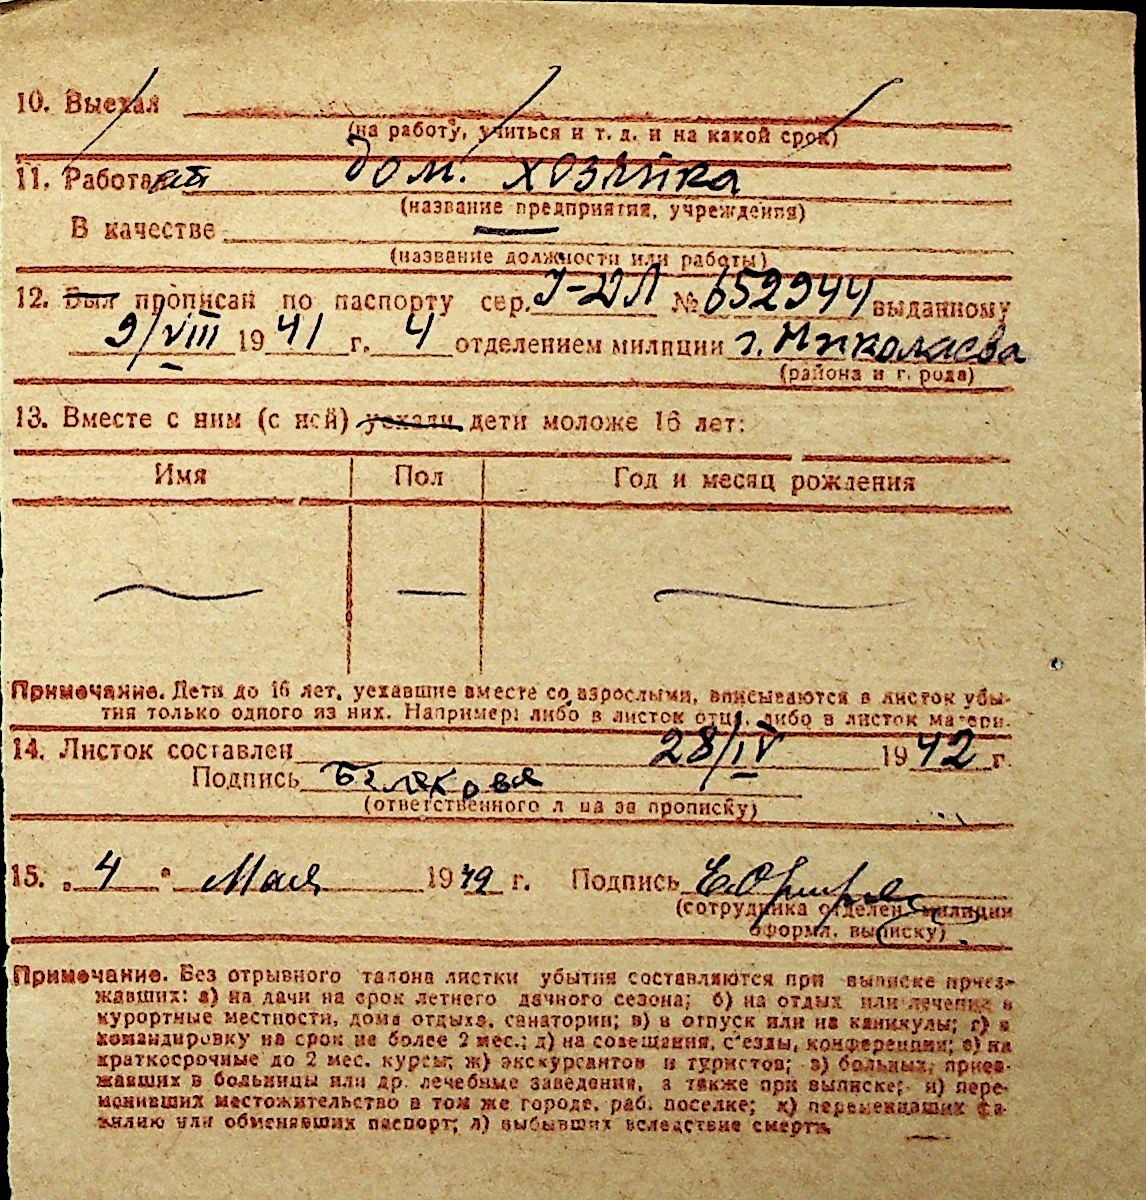 10. Выехал
(на работу, учиться и т. д. и на какой срок)
11. Работает дом. хозяйка
(название предприятия, учреждения)
В качестве —
(название должности или работы)
12. Был прописан по паспорту сер. I-ДЛ № 652944 выданному
9/VIII 1941 г. 4 отделением милиции г. Николаева
(района и г. рода)
13. Вместе с ним (с ней) уехали дети моложе 16 лет:
Имя Пол Год и месяц рождения
Примечание. Дети до 16 лет, уехавшие вместе со взрослыми, вписываются в листок убы-
тия только одного из них. Например: либо в листок отца, либо в листок матери.
14. Листок составлен 28/IV 1942 г.
Подпись Белякова
(ответственного л ца за прописку)
15. „4" Мая 1942 г. Подпись
(сотрудника отделен. милиции
оформл. выписку)
Примечание. Без отрывного талона листки убытия составляются при выписке приез-
жавших: а) на дачи на срок летнего дачного сезона; б) на отдых или лечение в
курортные местности, дома отдыха, санатории; в) в отпуск или на каникулы; г) в
командировку на срок не более 2 мес.; д) на совещания, с'езды, конференции; е) на
краткосрочные до 2 мес. курсы; ж) экскурсантов и туристов; з) больных, приез-
жавших в больницы или др. лечебные заведения, а также при выписке; и) пере-
менивших местожительство в том же городе, раб. поселке; к) переменивших фа-
милию или обменявших паспорт; л) выбывших вследствие смерти.